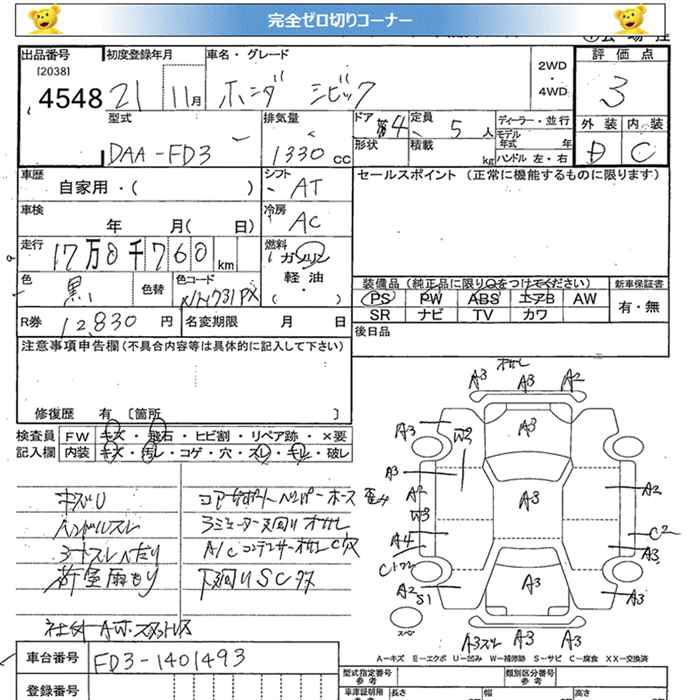 完全ゼロ切りコーナー
出品番号
[2038]
4548
初度登録年月
21 11月
車名・グレード
ホンダ シビック
2WD
・
4WD
評価点
3
型式
DAA-FD3
排気量
1330 cc
ドア
4
形状
定員
5 人
積載
kg
ディーラー・並行
モデル
年式 年
ハンドル 左・右
外装 内装
D C
車歴
自家用・( )
シフト
AT
セールスポイント (正常に機能するものに限ります)
車検
年 月( 日)
冷房
AC
走行
17万0千760 km
燃料
ガソリン
軽油
・( )
色
黒
色替
色コード
NH731PX
装備品 (純正品に限り○をつけてください)
新車保証書
PS PW ABS エアB AW
SR ナビ TV カワ
有・無
R券 12,830 円
名変期限 月 日
後日品
注意事項申告欄 (不具合内容等は具体的に記入して下さい)
修復歴 有 〔箇所 〕
検査員
記入欄
FW キズ・飛石・ヒビ割・リペア跡・×要
内装 キズ・汚レ・コゲ・穴・スレ・モレ・破レ
キズU
ハンドルスレ
シートスレヘたり
荷室雨もり
コアサポート
ラジエーター
A/Cコンデンサー
下廻りSC
A3 A3 A2
A3 W2 A3
A3
A3 A2
W3
A4 C2
A3
A2 S1
A3 A3
A3 A3
スペア
A－キズ E－エクボ U－凹み W－補修跡 S－サビ C－腐食 XX－交換済
車台番号 FD3-1401493
登録番号
型式指定番号
参考
類別区分番号
参考
車庫証明用
参考
長さ 幅 高さ